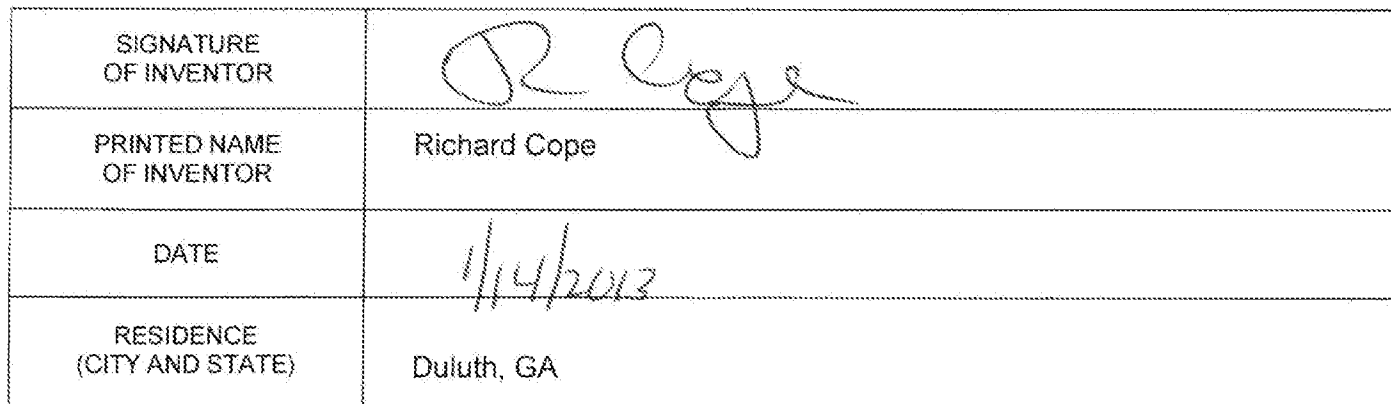 SIGNATURE
OF INVENTOR
R Cope
PRINTED NAME
OF INVENTOR
Richard Cope
DATE
1/14/2013
RESIDENCE
(CITY AND STATE)
Duluth, GA